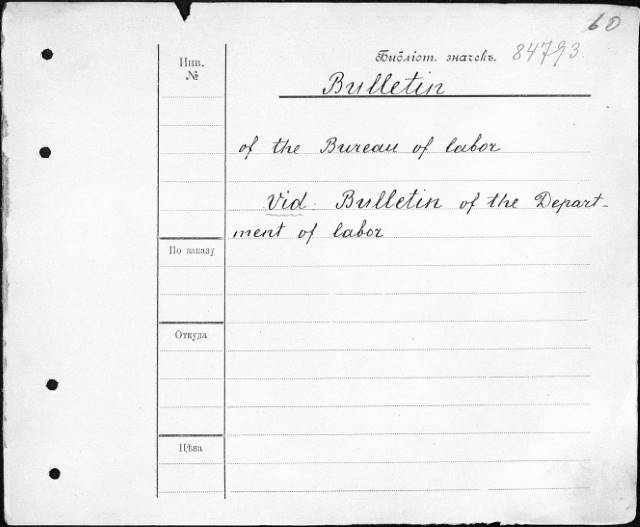 60
Инв.
№
Библіот. значекъ. 84793
Bulletin
of the Bureau of labor
Vid: Bulletin of the Depart-
ment of labor
По заказу
Откуда
Цѣна